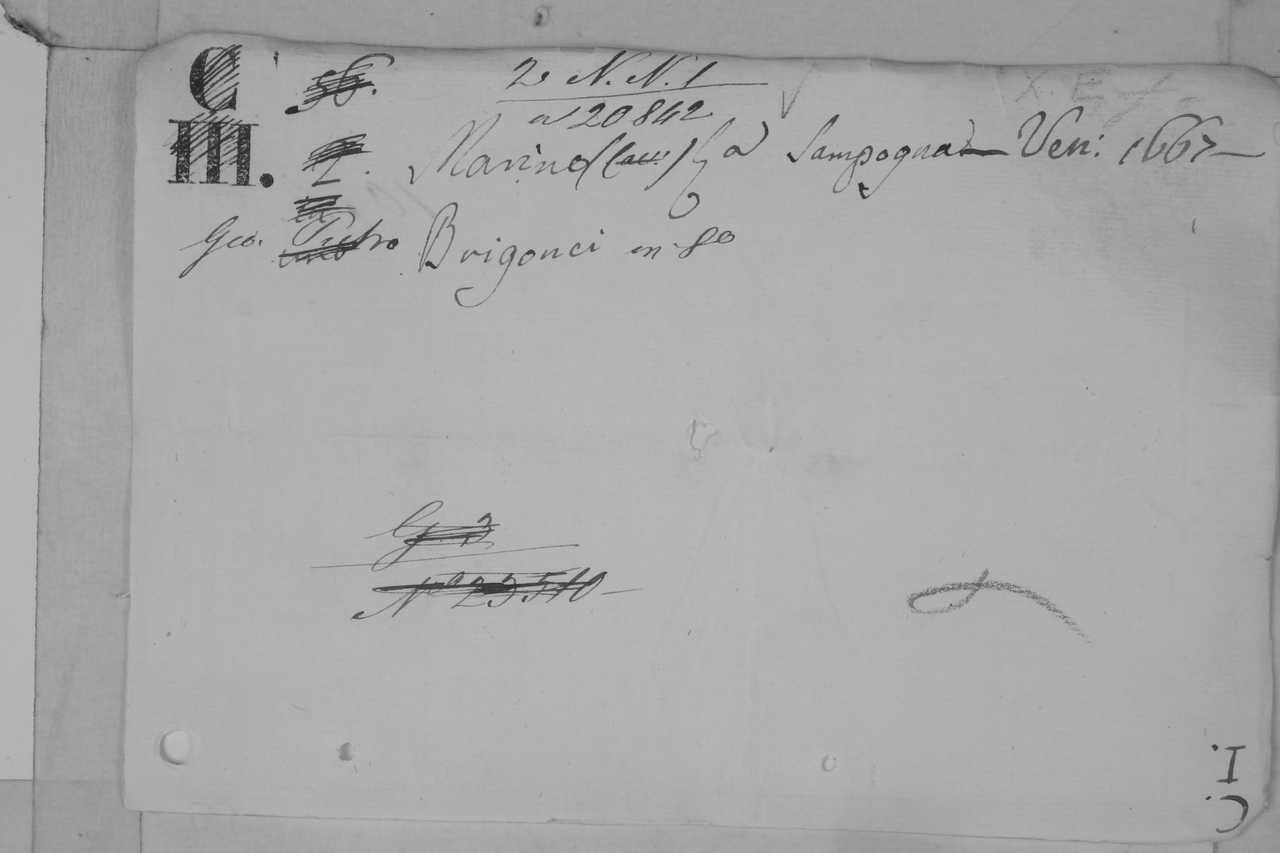 C
III.
2e N. N. 1
a 20842
Marino (Cav:) La Sampogna Ven: 1667
Gio. Pietro Brigonci in 8o
G. 3
No 23510
C. I.